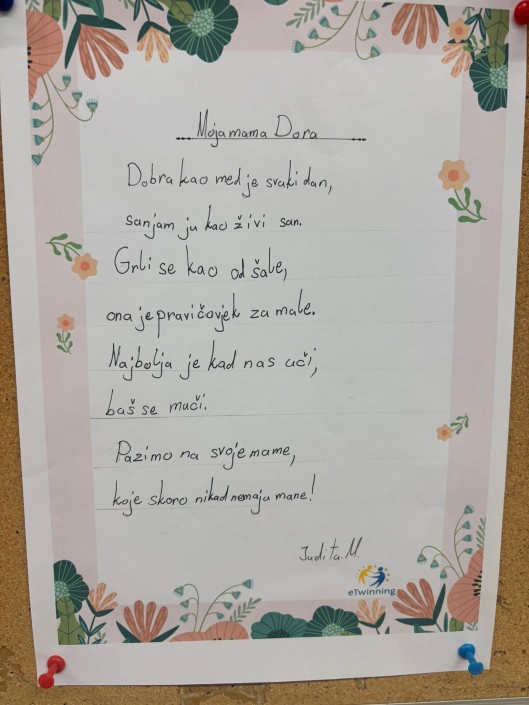 Moja mama Dora
Dobra kao med je svaki dan,
sanjam ju kao živi san.
Grli se kao od šale,
ona je pravi čovjek za male.
Najbolja je kad nas uči,
baš se muči.
Pazimo na svoje mame,
koje skoro nikad nemaju mane!
Judita M.
eTwinning